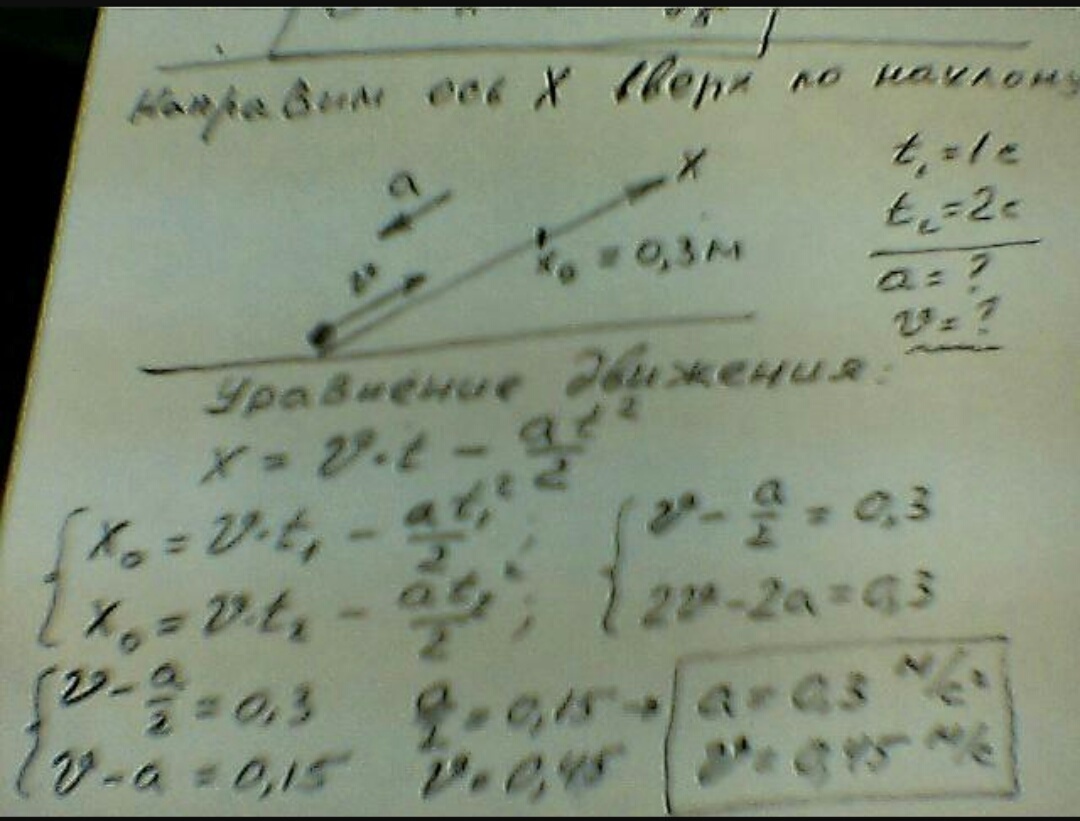 Направим ось X вверх по наклону
a
v
X
x₀ = 0,3м
t₁ = 1c
t₂ = 2c
a = ?
v = ?
Уравнение движения:
x = v·t - at²/2
x₀ = v·t₁ - at₁²/2 ;
x₀ = v·t₂ - at₂²/2 ;
v - a/2 = 0,3
2v - 2a = 0,3
v - a/2 = 0,3
v - a = 0,15
a/2 = 0,15 →
v = 0,45
a = 0,3 м/с²
v = 0,45 м/с